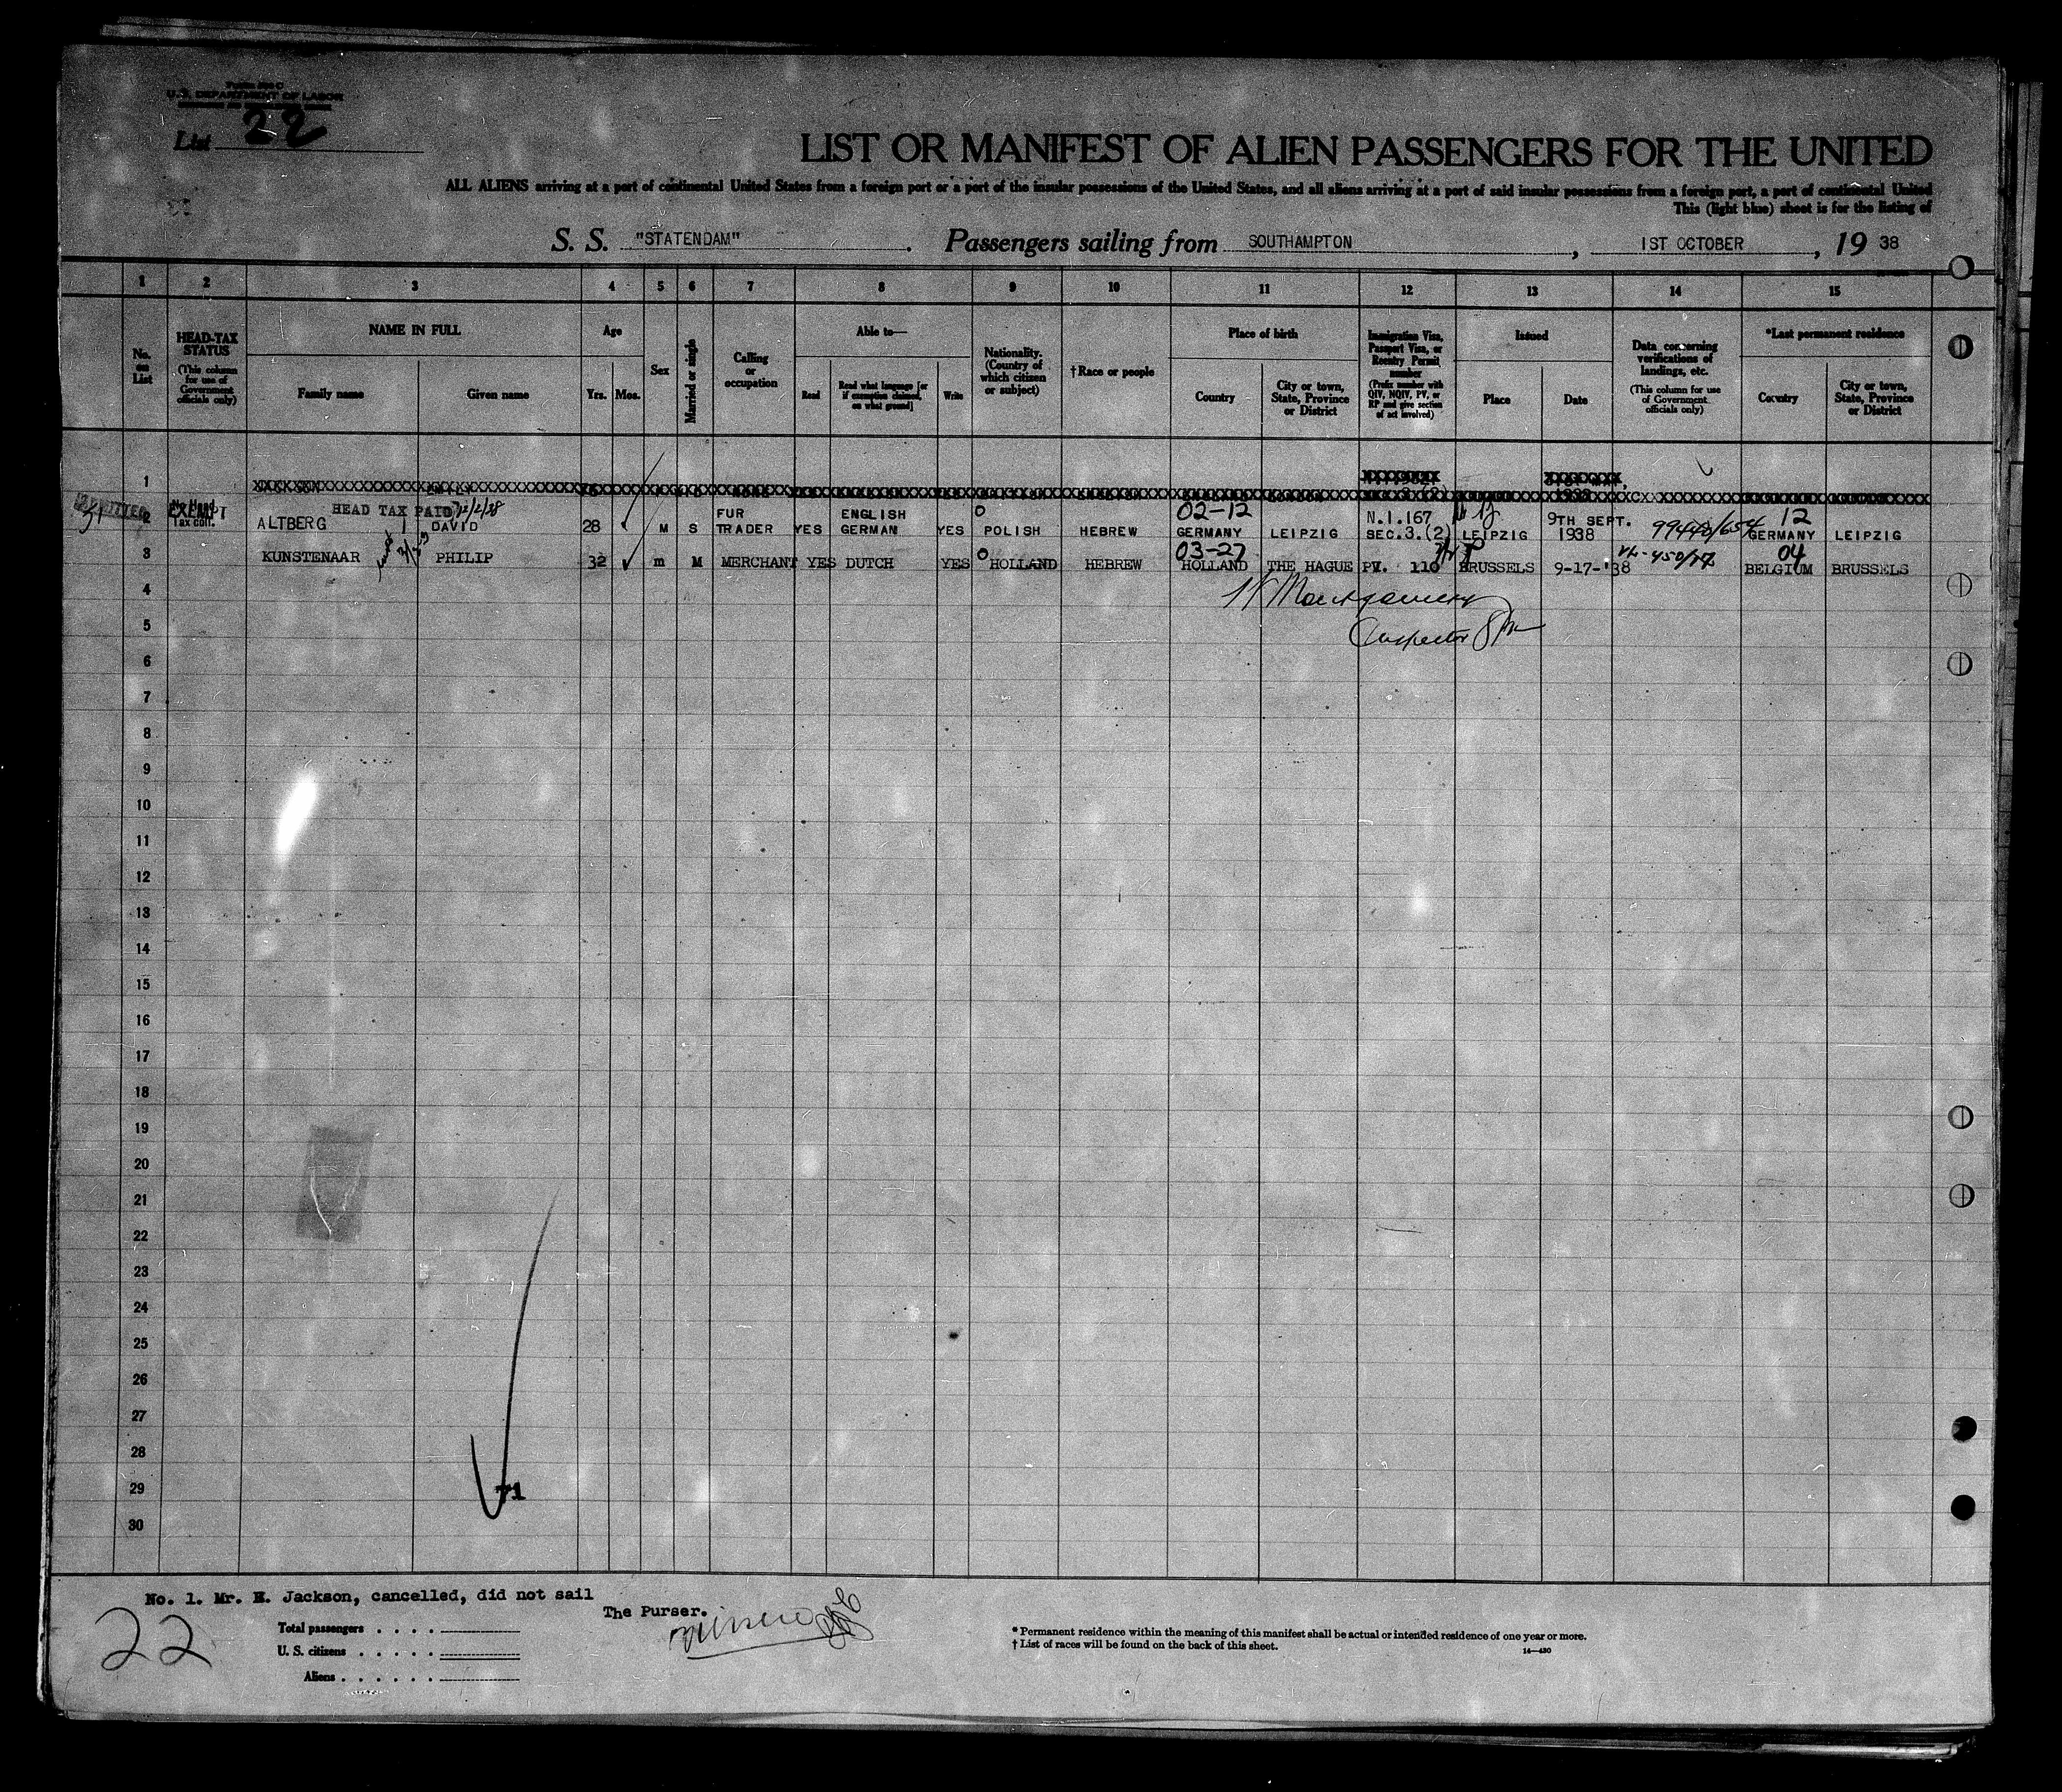 Form 500 C
U. S. DEPARTMENT OF LABOR
List 22
LIST OR MANIFEST OF ALIEN PASSENGERS FOR THE UNITED
ALL ALIENS arriving at a port of continental United States from a foreign port or a port of the insular possessions of the United States, and all aliens arriving at a port of said insular possessions from a foreign port, a port of continental United
This (light blue) sheet is for the listing of
S. S. "STATENDAM". Passengers sailing from SOUTHAMPTON, 1ST OCTOBER, 19 38
1 2 3 4 5 6 7 8 9 10 11 12 13 14 15
No. on List
HEAD-TAX STATUS (This column for use of Government officials only)
NAME IN FULL Family name Given name
Age Yrs. Mos.
Sex
Married or single
Calling or occupation
Able to— Read Read what language [or if exemption claimed, on what ground] Write
Nationality. (Country of which citizen or subject)
†Race or people
Place of birth Country City or town, State, Province or District
Immigration Visa, Passport Visa, or Reentry Permit number (Prefix number with QIV, NQIV, PV, or RP and give section of act involved)
Issued Place Date
Data concerning verifications of landings, etc. (This column for use of Government officials only)
*Last permanent residence Country City or town, State, Province or District
1
ADMITTED No Head Tax coll. EXEMPT HEAD TAX PAID
2 ALTBERG DAVID 28 M S FUR TRADER YES ENGLISH GERMAN YES POLISH HEBREW 02-12 GERMANY LEIPZIG N.I.167 SEC.3.(2) LEIPZIG 9TH SEPT. 1938 99448/654 12 GERMANY LEIPZIG
3 KUNSTENAAR PHILIP 32 m M MERCHANT YES DUTCH YES HOLLAND HEBREW 03-27 HOLLAND THE HAGUE PV. 110 BRUSSELS 9-17-'38 04 BELGIUM BRUSSELS
4 Montgomery
5 Inspector
6
7
8
9
10
11
12
13
14
15
16
17
18
19
20
21
22
23
24
25
26
27
28
29 71
30
No. 1. Mr. E. Jackson, cancelled, did not sail
The Purser.
22
Total passengers
U. S. citizens
Aliens
* Permanent residence within the meaning of this manifest shall be actual or intended residence of one year or more.
† List of races will be found on the back of this sheet.
14—430